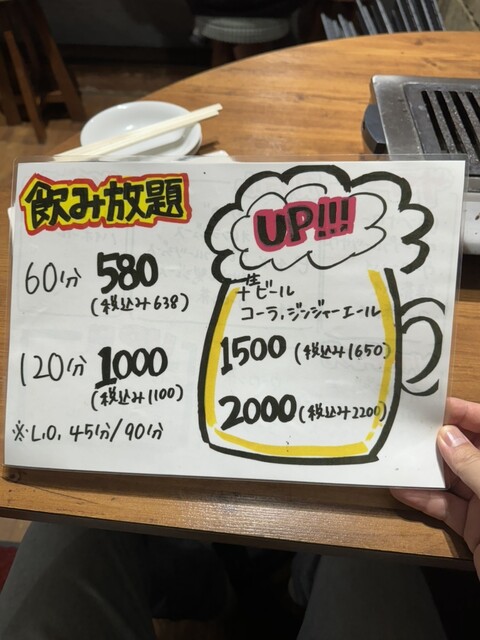 飲み放題
60分 580
(税込み638)
120分 1000
(税込み1100)
※L.O, 45分/90分
UP!!!
+生ビール
コーラ,ジンジャーエール
1500 (税込み1650)
2000 (税込み2200)